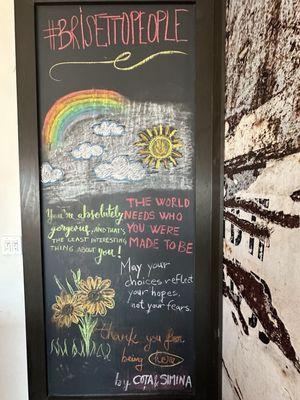 #BRISETTOPEOPLE
You're absolutely
gorgeous, AND THAT'S
THE LEAST INTERESTING
THING ABOUT you!
THE WORLD
NEEDS WHO
YOU WERE
MADE TO BE
May your
choices reflect
your hopes,
not your fears.
thank you for
being here
by COTA & SIMINA